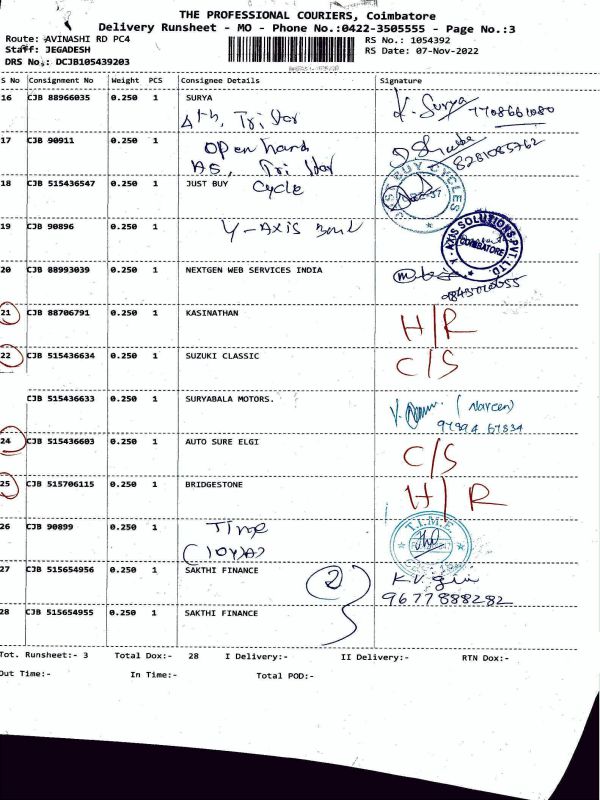 THE PROFESSIONAL COURIERS, Coimbatore
Delivery Runsheet - MO - Phone No.:0422-3505555 - Page No.:3
Route: AVINASHI RD PC4 RS No.: 1054392
Staff: JEGADESH RS Date: 07-Nov-2022
DRS No.: DCJB105439203
S No Consignment No Weight PCS Consignee Details Signature
16 CJB 88966035 0.250 1 SURYA K. Surya 7708661080
4th, Tri Star
17 CJB 90911 0.250 1 Open hand
A6, Tri Star 8281085762
18 CJB 515436547 0.250 1 JUST BUY Cycle JUST BUY CYCLES
19 CJB 90896 0.250 1 Y-Axis Y - AXIS SOLUTIONS PVT. LTD COIMBATORE
20 CJB 88993039 0.250 1 NEXTGEN WEB SERVICES INDIA
21 CJB 88706791 0.250 1 KASINATHAN H/R
22 CJB 515436634 0.250 1 SUZUKI CLASSIC C/S
CJB 515436633 0.250 1 SURYABALA MOTORS. (Naveen)
97894 67834
24 CJB 515436603 0.250 1 AUTO SURE ELGI C/S
25 CJB 515706115 0.250 1 BRIDGESTONE H/R
26 CJB 90899 0.250 1 Time T.I.M.E.
27 CJB 515654956 0.250 1 SAKTHI FINANCE 2
9677888282
28 CJB 515654955 0.250 1 SAKTHI FINANCE
Tot. Runsheet:- 3 Total Dox:- 28 I Delivery:- II Delivery:- RTN Dox:-
Out Time:- In Time:- Total POD:-